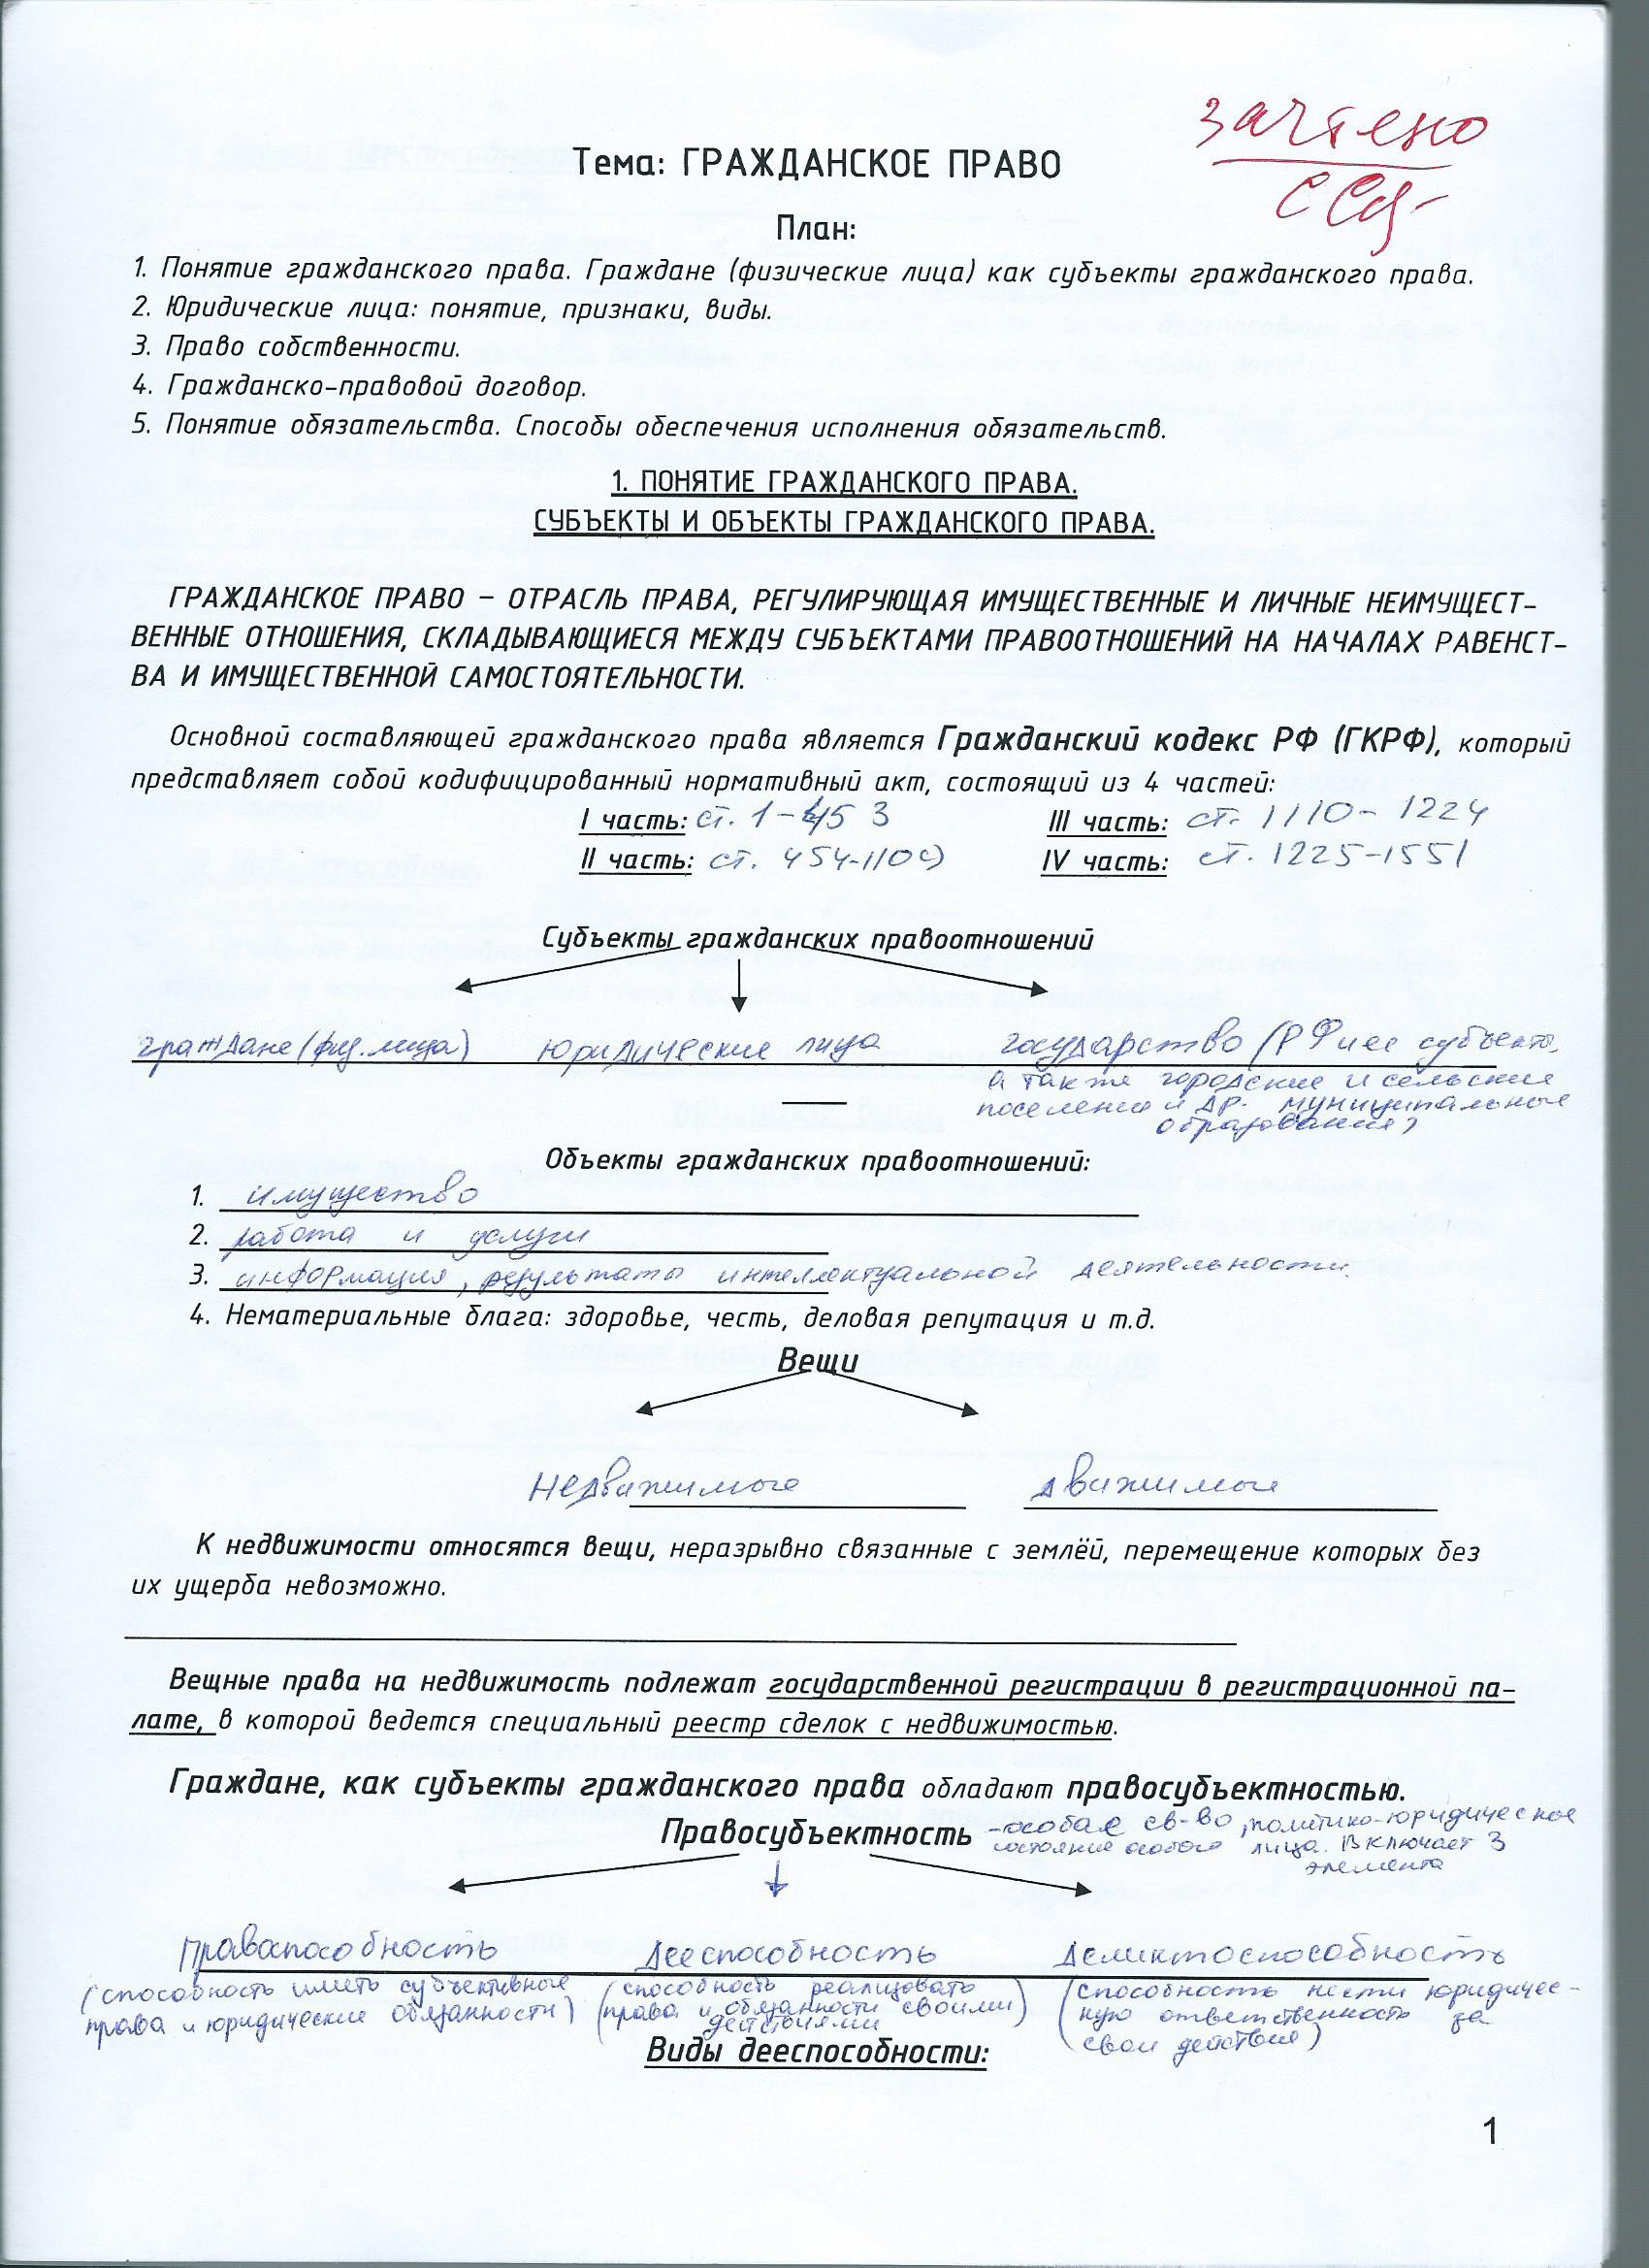 зачтено
Тема: ГРАЖДАНСКОЕ ПРАВО
План:
1. Понятие гражданского права. Граждане (физические лица) как субъекты гражданского права.
2. Юридические лица: понятие, признаки, виды.
3. Право собственности.
4. Гражданско-правовой договор.
5. Понятие обязательства. Способы обеспечения исполнения обязательств.
1. ПОНЯТИЕ ГРАЖДАНСКОГО ПРАВА.
СУБЪЕКТЫ И ОБЪЕКТЫ ГРАЖДАНСКОГО ПРАВА.
ГРАЖДАНСКОЕ ПРАВО – ОТРАСЛЬ ПРАВА, РЕГУЛИРУЮЩАЯ ИМУЩЕСТВЕННЫЕ И ЛИЧНЫЕ НЕИМУЩЕСТ-
ВЕННЫЕ ОТНОШЕНИЯ, СКЛАДЫВАЮЩИЕСЯ МЕЖДУ СУБЪЕКТАМИ ПРАВООТНОШЕНИЙ НА НАЧАЛАХ РАВЕНСТ-
ВА И ИМУЩЕСТВЕННОЙ САМОСТОЯТЕЛЬНОСТИ.
Основной составляющей гражданского права является Гражданский кодекс РФ (ГКРФ), который
представляет собой кодифицированный нормативный акт, состоящий из 4 частей:
I часть: ст. 1-453 III часть: ст. 1110-1224
II часть: ст. 454-1109 IV часть: ст. 1225-1551
Субъекты гражданских правоотношений
граждане (физ. лица) юридические лица государство (РФ и ее субъекты,
а также городские и сельские
поселения и др. муниципальные
образования)
Объекты гражданских правоотношений:
1. имущество
2. работа и услуги
3. информация, результаты интеллектуальной деятельности.
4. Нематериальные блага: здоровье, честь, деловая репутация и т.д.
Вещи
недвижимые движимые
К недвижимости относятся вещи, неразрывно связанные с землёй, перемещение которых без
их ущерба невозможно.
Вещные права на недвижимость подлежат государственной регистрации в регистрационной па-
лате, в которой ведется специальный реестр сделок с недвижимостью.
Граждане, как субъекты гражданского права обладают правосубъектностью.
Правосубъектность - особое св-во, политико-юридическое
состояние особого лица. Включает 3
элемента
Правоспособность Дееспособность Деликтоспособность
(способность иметь субъективные (способность реализовать (способность нести юридичес-
права и юридические обязанности) права и обязанности своими ную ответственность за
действиями) свои действия)
Виды дееспособности:
1